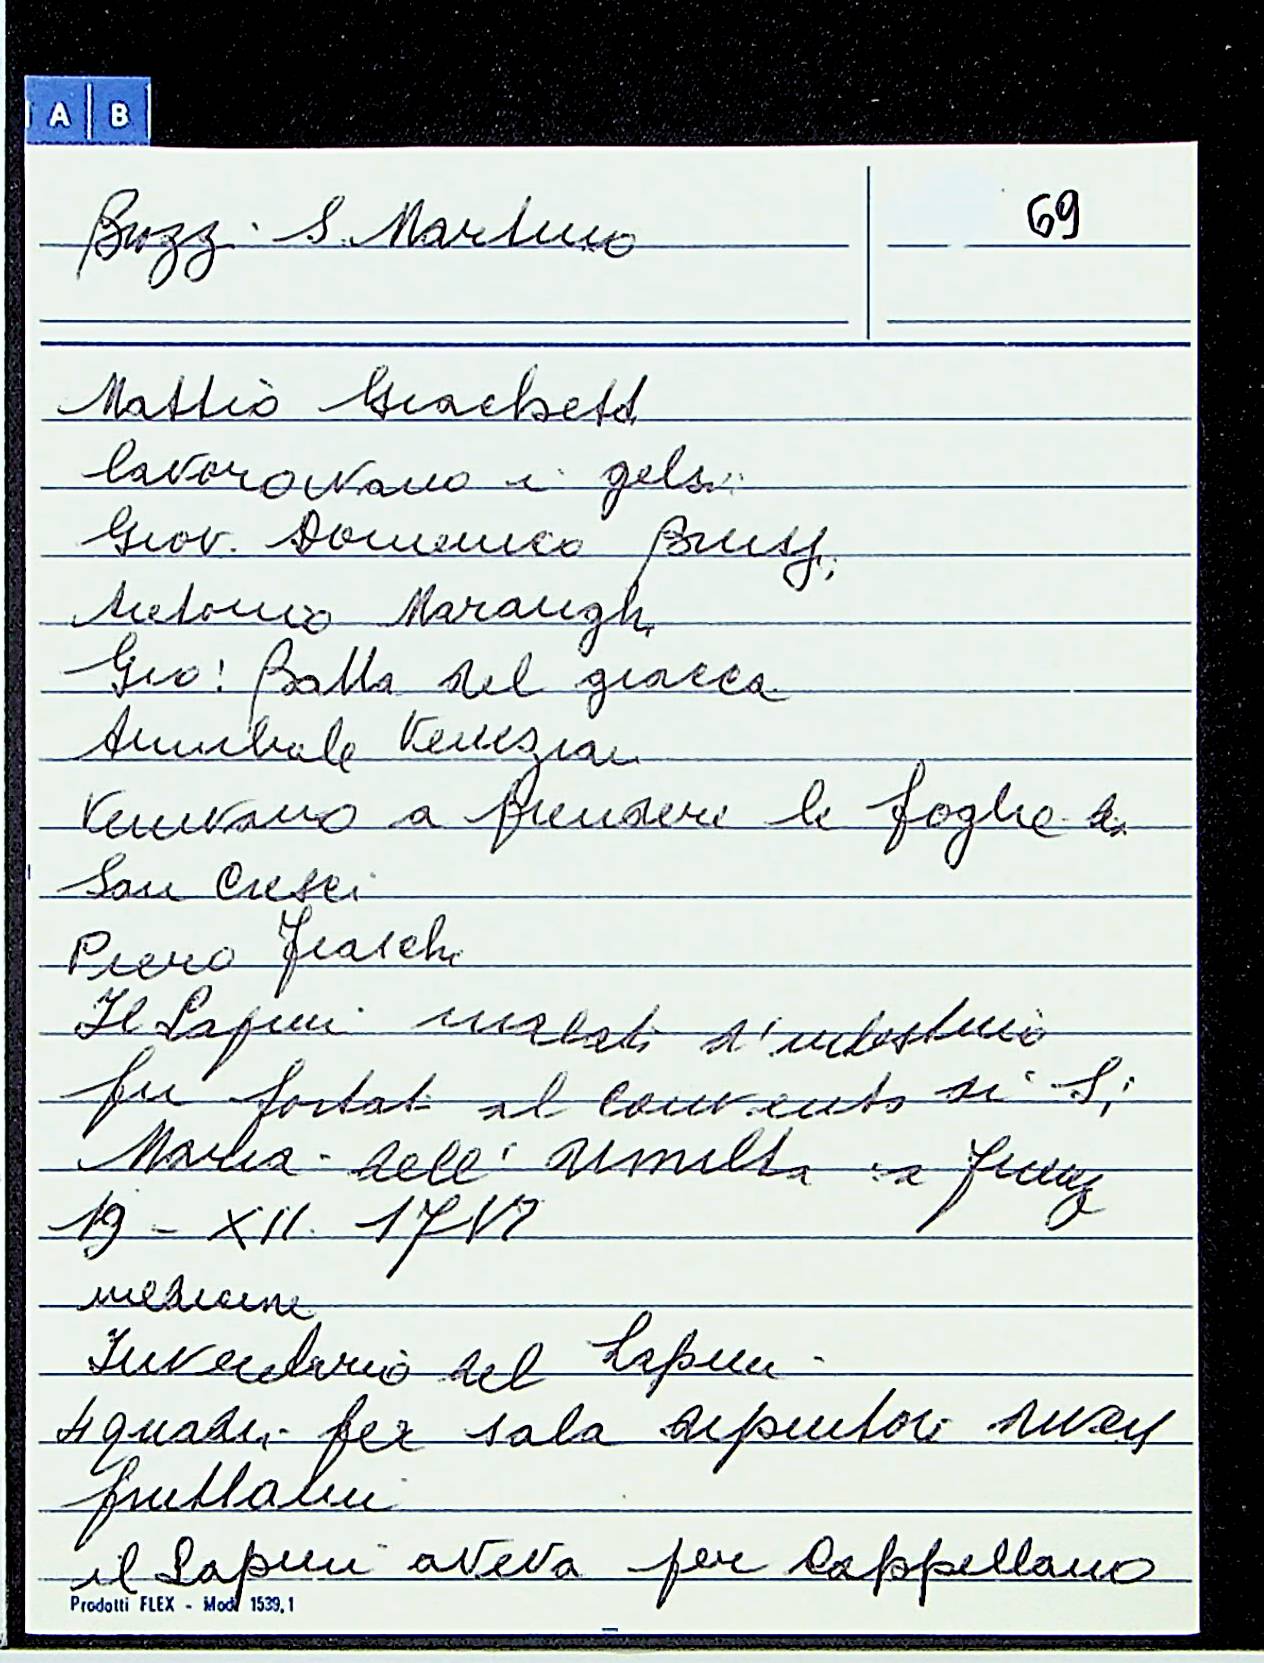 A B
Bozzi S. Martino
69
Mattio Giachetti
lavoravano i gelsi
Giov. Domenico
Antonio Maranghi
Gio: Batta del giacca
Annibale Veneziani
Venivano a prendere le foglie di
San Cresci
Piero Fraschi
Il Lapini malato d'intestino
fu portato al convento di S.
Maria dell' Umiltà a
19 - XII. 1717
medicine
Inventario del Lapini
4 quadri per sala dipintori
fruttami
il Lapini aveva per Cappellano
Prodotti FLEX - Mod. 1539,1